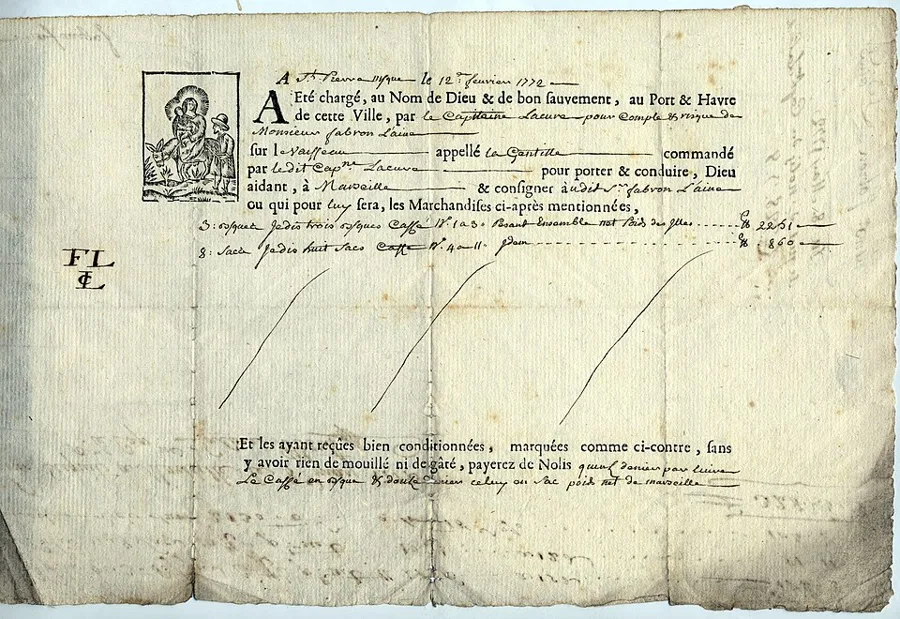 A St. Pierre Mque le 12e. fevrier 1772
A Eté chargé, au Nom de Dieu & de bon sauvement, au Port & Havre
de cette Ville, par le Capitaine Lacure pour Compte & risque de
Monsieur fabron L'ainé
sur le Vaisseau appellé la Gentille commandé
par ledit Capne. Lacure pour porter & conduire, Dieu
aidant, à Marseille & consigner audit Sr. fabron L'ainé
ou qui pour luy sera, les Marchandises ci-après mentionnées,
3: Je dis trois Caffé No. 1 a 3. Pesant Ensemble net Poids des Isles 2251
8: Sacs Je dis huit Sacs Caffé No. 4 a 11. Idem 860
FL
C
L
Et les ayant reçûes bien conditionnées, marquées comme ci-contre, sans
y avoir rien de mouillé ni de gâté, payerez de Nolis denier par Livre
Le Caffé en & denier celuy en Sac poids net de marseille